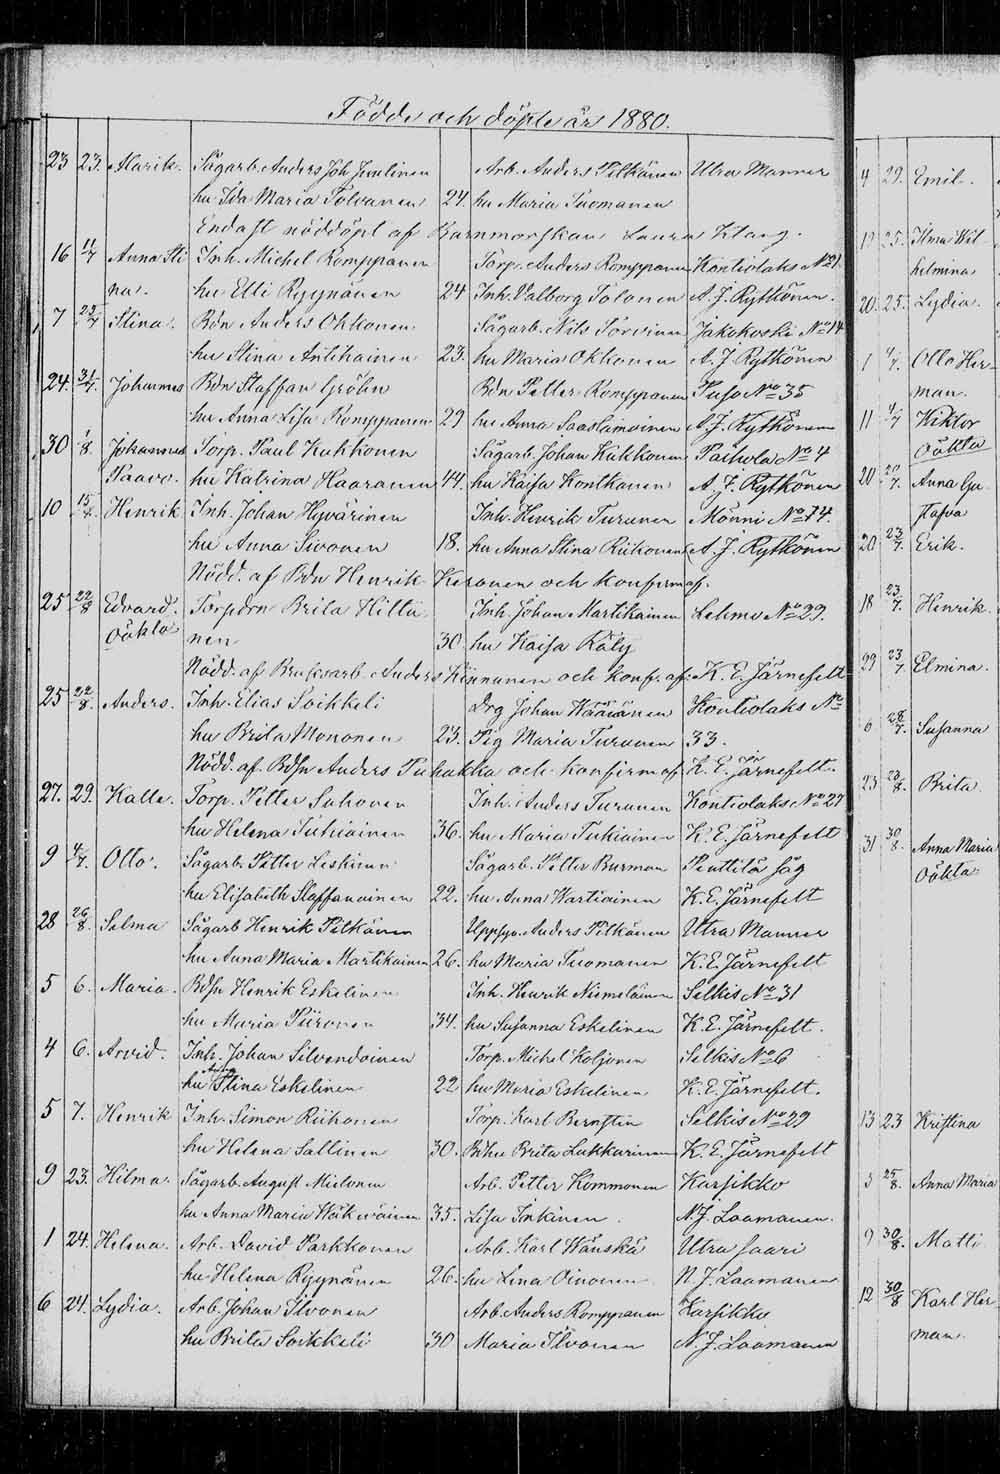 Födde och döpte år 1880.
23 23. Marik. Sågarb. Anders Joh. Arb. Anders Pitkänen Utra Manner
hu Ida Maria Tolvanen 24. hu Maria Tuomanen
Endast nöddöpt af Barnmorskan Laura Klang.
16 11/7 Anna Sti Inh. Michel Romppanen Torp. Anders Romppanen Kontiolaks No 21
na. hu Elli Ryynänen 24 Inh. Valborg Tolonen A. J. Rytkönen.
7 25/7 Stina. Bdn Anders Ohkonen Sågarb. Nils Torvinen Jakokoski No 14
hu Stina Antikainen 23. hu Maria Okkonen A. J. Rytkönen
24. 31/7. Johannes Bdn Staffan Gröhn Bdn Petter Romppanen Puso No 35
hu Anna Lisa Romppanen 29 hu Anna Saastamoinen A. J. Rytkönen
30 1/8. Johannes Torp. Paul Kukkonen Sågarb. Johan Kukkonen Paihola No 4
Paavo. hu Katrina Haaranen 44. hu Kaisa Kontkanen A. J. Rytkönen
10 15/4. Henrik Inh. Johan Hyvärinen Inh. Henrik Turunen Mönni No 74.
hu Anna Sivonen 18. hu Anna Stina Riikonen A. J. Rytkönen
Nödd. af Bdn Henrik Keronen och konfirm af.
25 22/8 Edvard. Torpdrn Brita Hiltu Inh Johan Martikainen Lehmo No 29.
Oäkta nen 30. hu Kaisa Räty
Nödd. af Bruksarb. Anders Kinnunen och konf. af. K. E. Järnefelt
25 22/8. Anders. Inh. Elias Soikkeli Drg Johan Wääränen Kontiolaks No
hu Brita Mononen 23. Pig Maria Turunen 33.
Nödd. af. Bdsn Anders Puhakka och konfirm af. K. E. Järnefelt.
27. 29. Kalle. Torp. Petter Sahonen Inh. Anders Turunen Kontiolaks No 27
hu Helena Tukiainen 36. hu Maria Tukiainen K. E. Järnefelt
9 4/7. Otto. Sågarb. Petter Leskinen Sågarb. Petter Burman Penttilä såg
hu Elisabeth Staffanainen 22. hu Anna Wartiainen K. E. Järnefelt
28 26/8. Selma Sågarb Henrik Pitkänen Uppsyn. Anders Pitkänen Utra Manner
hu Anna Maria Martikainen 26. hu Maria Tuomanen K. E. Järnefelt
5 6. Maria. Bdsn Henrik Eskelinen Inh. Henrik Niemeläinen Selkis No 31
hu Maria Piironen 34. hu Susanna Eskelinen K. E. Järnefelt.
4 6. Arvid. Inh. Johan Silvendoinen Torp. Michel Koljonen Selkis No 6
hu Stina Eskelinen 22 hu Maria Eskelinen K. E. Järnefelt.
5 7. Henrik Inh. Simon Riikonen Torp. Karl Bernstin Selkis No 29
hu Helena Sallinen 30. Bdhu Brita Lukkarinen K. E. Järnefelt
9 23. Hilma. Sågarb. August Mielonen Arb. Petter Kommonen Karsikko
hu Anna Maria 35. Lisa Inkinen. N. J. Laamanen.
1 24. Helena. Arb. David Parkkonen Arb. Karl Wänskä Utra Saari
hu Helena Ryynänen 26. hu Lena Oinonen N. J. Laamanen
6 24. Lydia. Arb. Johan Ilvonen Arb. Anders Romppanen Karsikko
hu Brita Soikkeli 30 Maria Ilvonen N. J. Laamanen
4 29. Emil.
19 25. Ilma Wil
helmina
20. 25. Lydia.
1 4/7. Otto Her-
man.
11 4/7 Wiktor
Oäkta
20 20/7. Anna Gu
stafva
20 23/7. Erik.
18 23/7. Henrik.
29 23/7. Elmina.
6 28/7. Susanna
23 28/8. Brita.
31 30/8. Anna Maria
Oäkta
13 23 Kristina
3 25/8. Anna Maria
9 30/8. Matti
12 30/8 Karl Her
man.